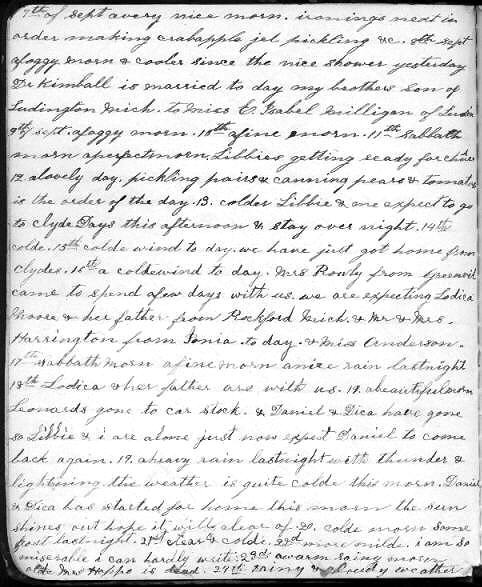 7th of sept a very nice morn. ironings next in
order making crabapple jel pickling &c. 8th sept
a foggy morn & cooler since the nice shower yesterday
Dr Kimball is married to day my brothers Son of
Ludington Mich. to Miss E. Isabel Milligan of Ludin
9th sept. a foggy morn. 10th a fine morn. 11th Sabbath
morn a perfect morn, Libbies getting ready for church
12. a lovely day. pickling pairs & canning pears & tomatoes
is the order of the day. 13. colder Libbie & me expect to go
to Clyde Days this afternoon & stay over night. 14th
colde. 15th colde wind to day. we have just got home from
Clydes. 16th a colde wind to day. Mrs Rowly from Greenvill
came to spend a few days with us. we are expecting Lodica
Moore & her father from Rockford Mich. & Mr & Mrs.
Harrington from Ionia to day. & Miss Anderson.
17th Sabbath morn a fine morn a nice rain lastnight
18th Lodica & her father are with us. 19. a beautiful morn
Leonards gone to car stock. & Daniel & Dica have gone
so Libbie & i are alone just now expect Daniel to come
back again. 19. a heavy rain lastnight with thunder &
lightning the weather is quite colde this morn. Daniel
& Dica has started for home this morn the sun
shines out hope it will clear of 20. colde morn some
frost last night. 21st clear & colde. 22nd more mild. i am so
miserable i can hardly write. 23rd. a warm rainy morn
olde Mrs Hoppo is dead. 24th rainy & cloudy weather